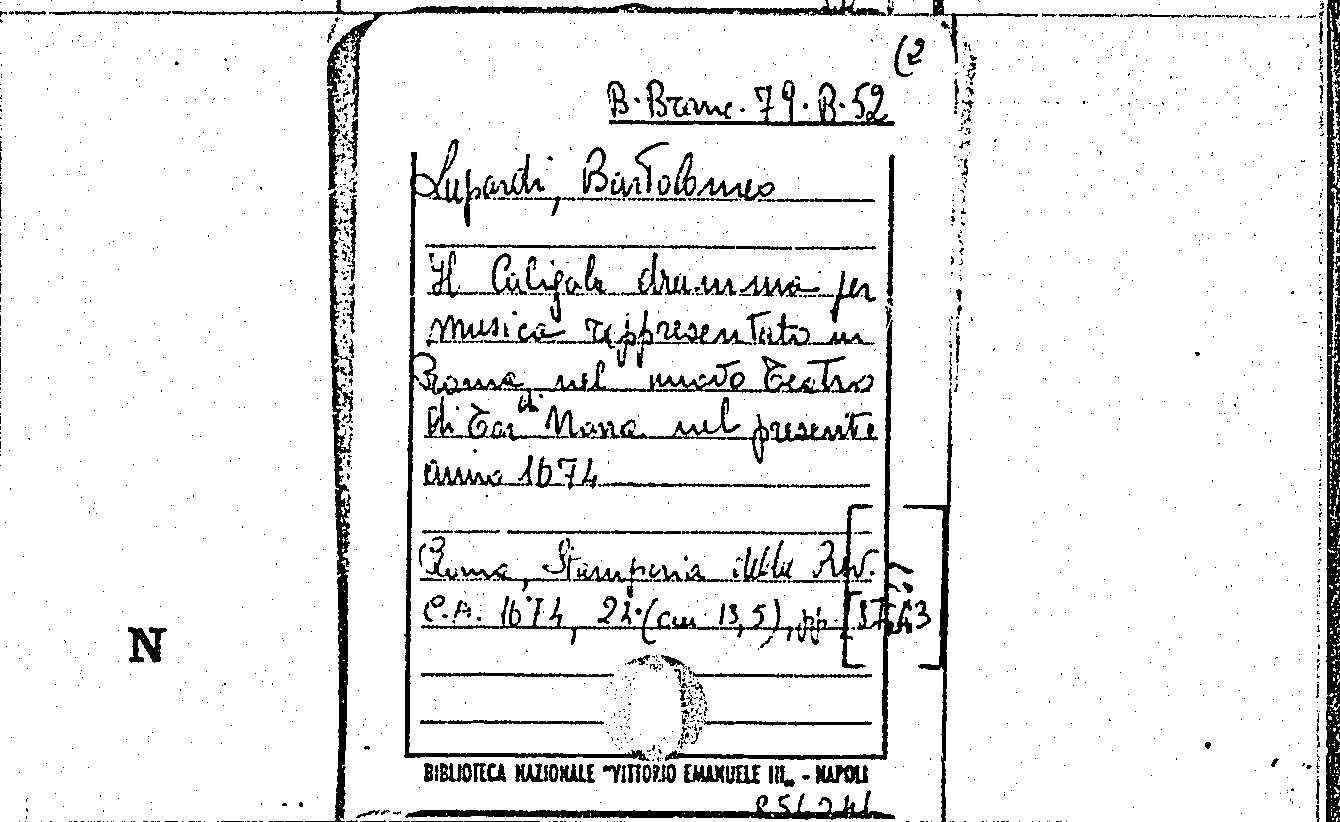 (2
B. Branc. 79. B. 52
Lupardi, Bartolomeo
Il Caligola dramma per
musica rappresentato in
Roma nel nuovo Teatro
di Tor di Nona nel presente
anno 1674
Roma, Stamperia della Rev.
C.A. 1674, 24° (cm 13,5), pp.
N
BIBLIOTECA NAZIONALE "VITTORIO EMANUELE III„ - NAPOLI